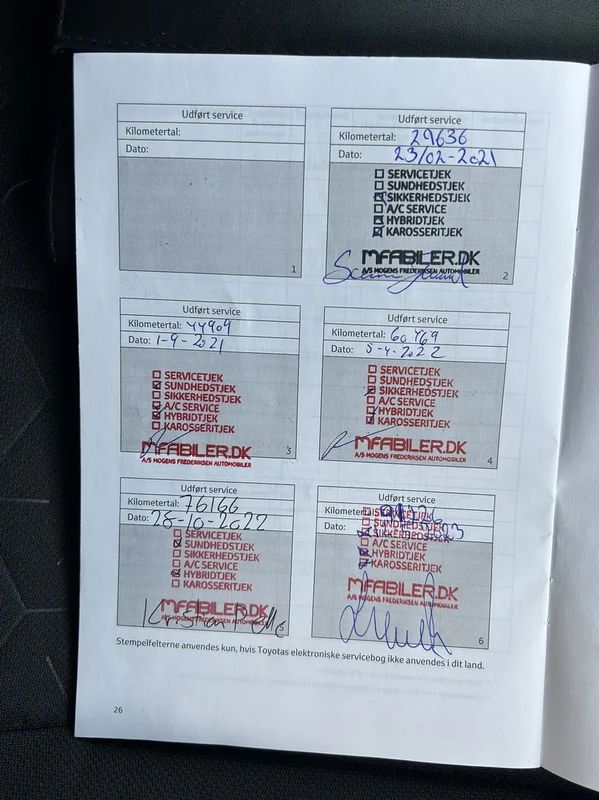 Udført service
Kilometertal:
Dato:
1
Udført service
Kilometertal: 29636
Dato: 23/02-2021
SERVICETJEK
SUNDHEDSTJEK
SIKKERHEDSTJEK
A/C SERVICE
HYBRIDTJEK
KAROSSERITJEK
MFABILER.DK
A/S MOGENS FREDERIKSEN AUTOMOBILER
2
Udført service
Kilometertal: 44909
Dato: 1-9-2021
SERVICETJEK
SUNDHEDSTJEK
SIKKERHEDSTJEK
A/C SERVICE
HYBRIDTJEK
KAROSSERITJEK
MFABILER.DK
A/S MOGENS FREDERIKSEN AUTOMOBILER
3
Udført service
Kilometertal: 60769
Dato: 5-4-2022
SERVICETJEK
SUNDHEDSTJEK
SIKKERHEDSTJEK
A/C SERVICE
HYBRIDTJEK
KAROSSERITJEK
MFABILER.DK
A/S MOGENS FREDERIKSEN AUTOMOBILER
4
Udført service
Kilometertal: 76166
Dato: 28-10-2022
SERVICETJEK
SUNDHEDSTJEK
SIKKERHEDSTJEK
A/C SERVICE
HYBRIDTJEK
KAROSSERITJEK
MFABILER.DK
A/S MOGENS FREDERIKSEN AUTOMOBILER
Udført service
Kilometertal:
Dato:
SERVICETJEK
SUNDHEDSTJEK
SIKKERHEDSTJEK
A/C SERVICE
HYBRIDTJEK
KAROSSERITJEK
MFABILER.DK
A/S MOGENS FREDERIKSEN AUTOMOBILER
6
Stempelfelterne anvendes kun, hvis Toyotas elektroniske servicebog ikke anvendes i dit land.
26